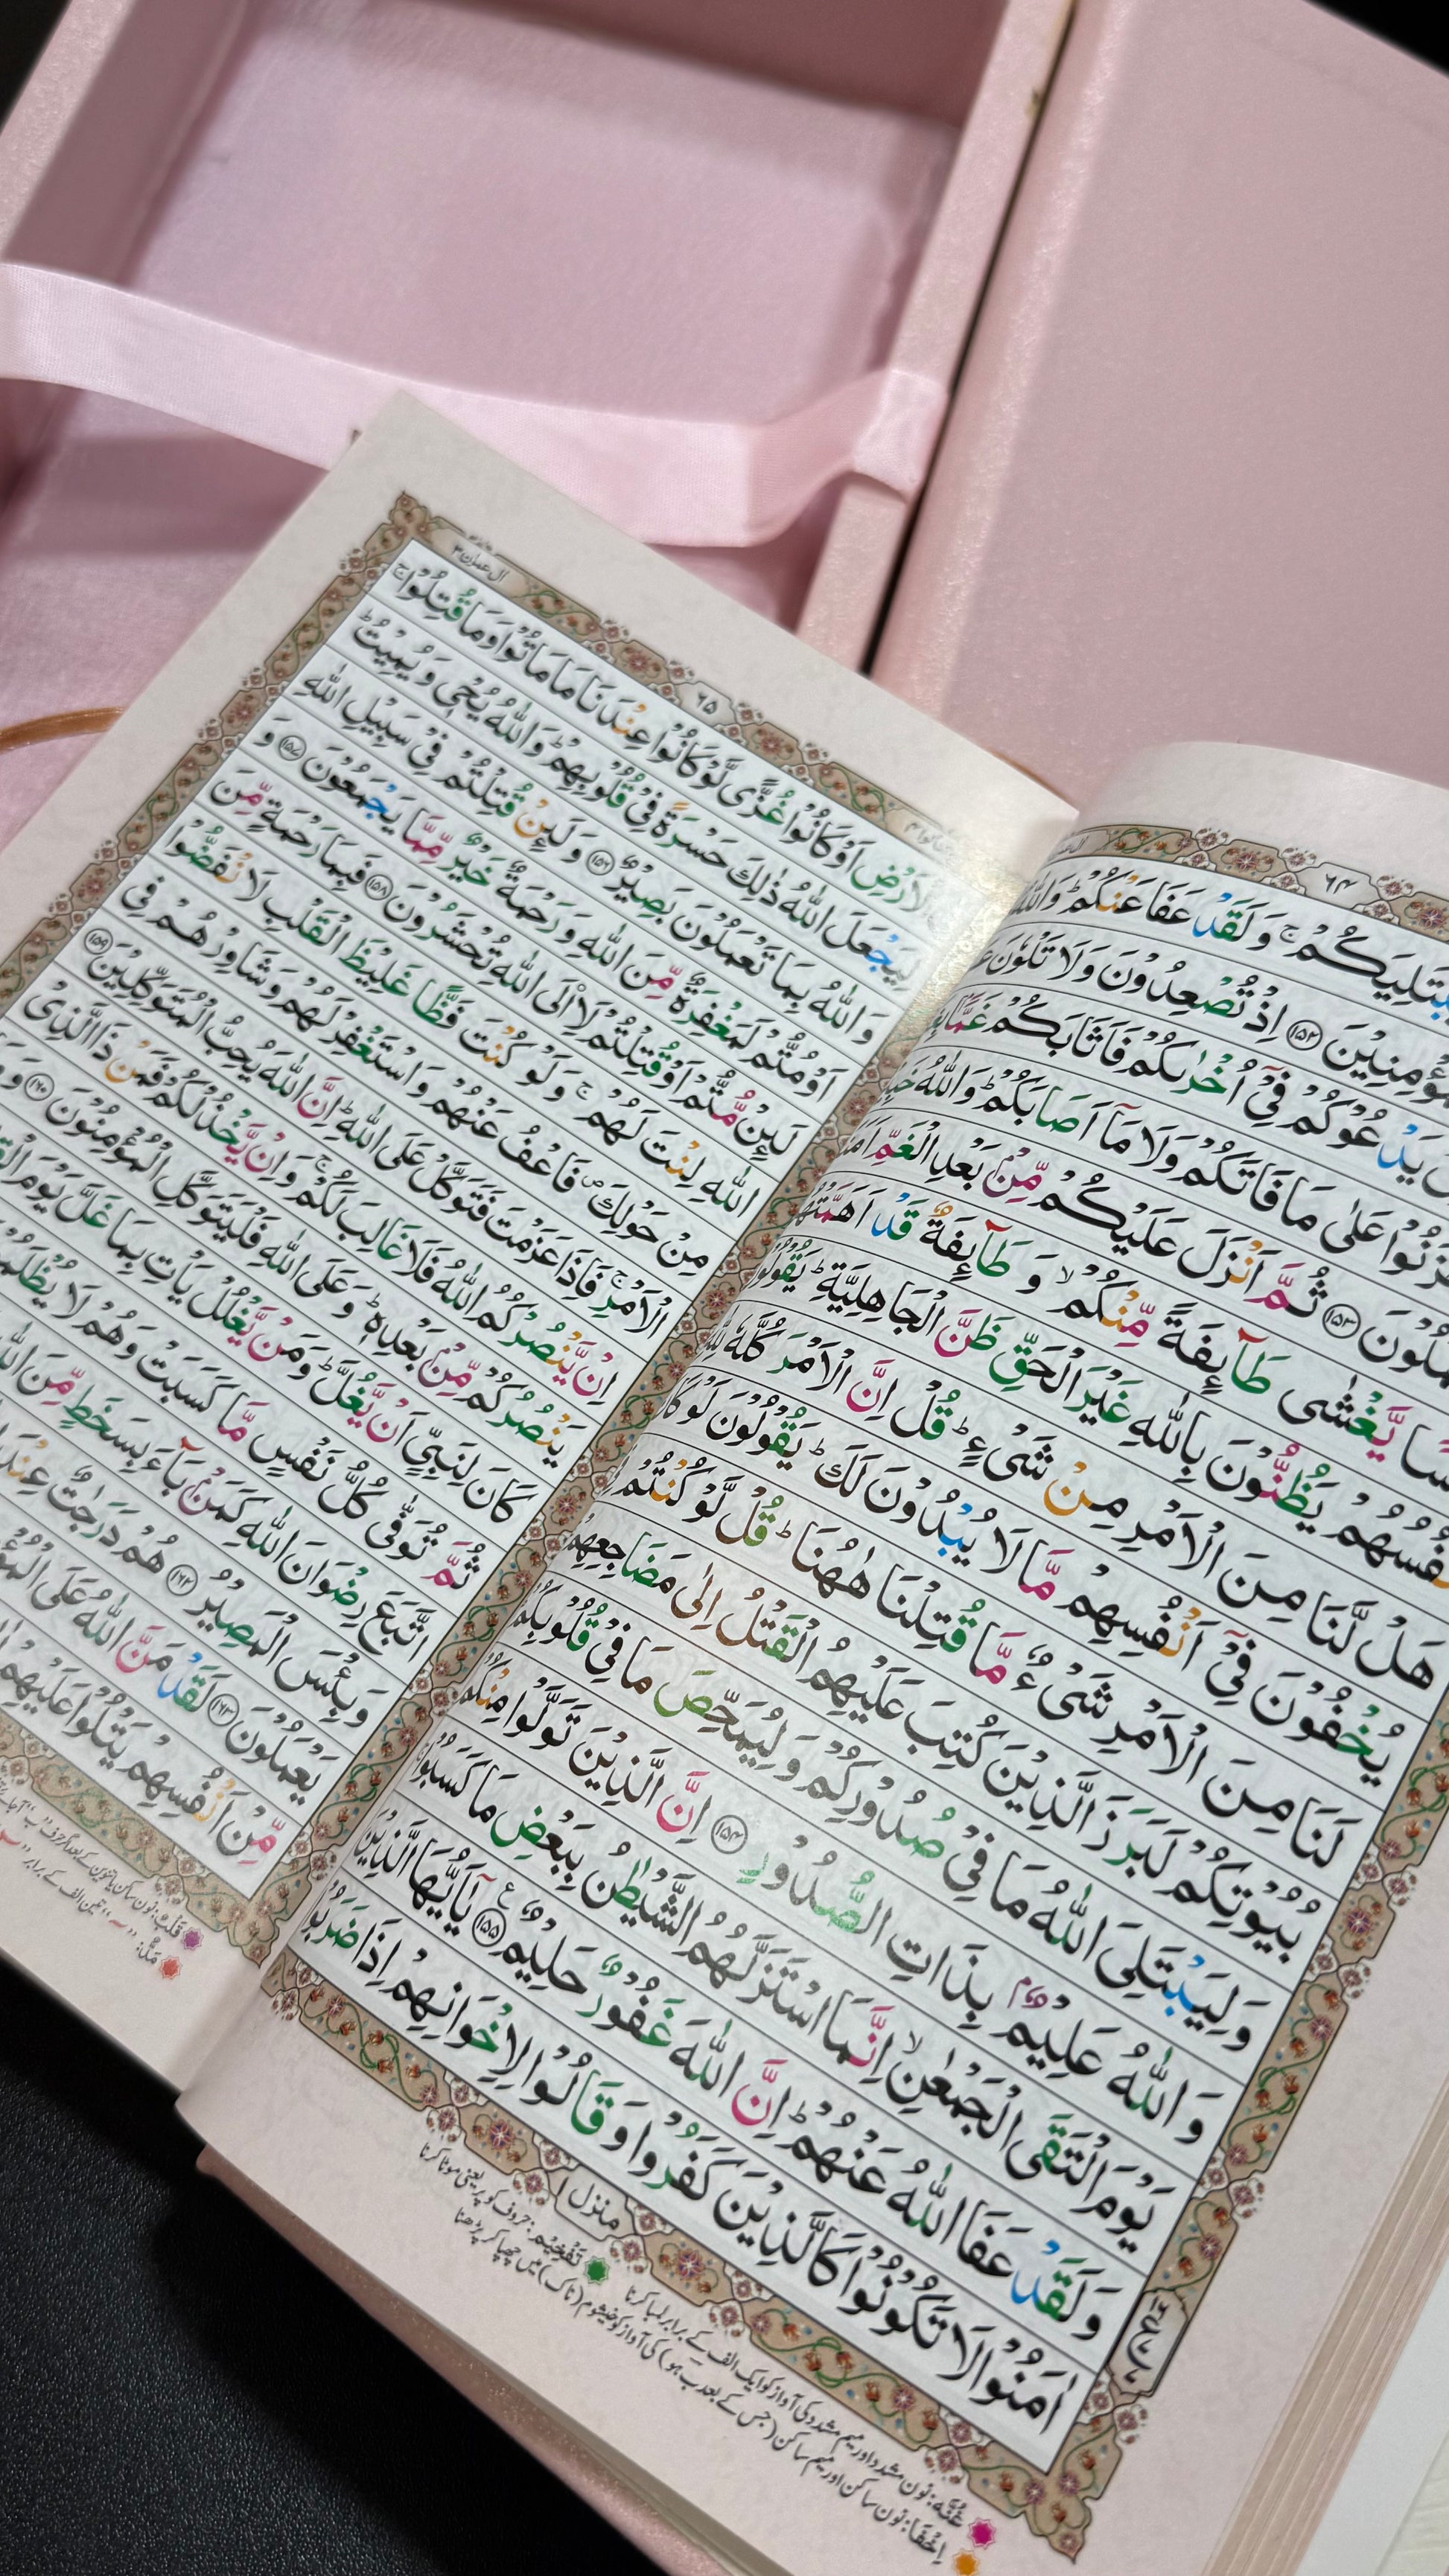 ۶۴
بْتَلِيَكُمْ ۚ وَلَقَدْ عَفَا عَنْكُمْ ؕ وَاللّٰهُ
الْمُؤْمِنِيْنَ ﴿۱۵۲﴾ اِذْ تُصْعِدُوْنَ وَلَا تَلْوٗنَ
يَدْعُوْكُمْ فِيْۤ اُخْرٰىكُمْ فَاَثَابَكُمْ غَمًّۢا
تَحْزَنُوْا عَلٰى مَا فَاتَكُمْ وَلَا مَاۤ اَصَابَكُمْ ؕ وَاللّٰهُ
﴿۱۵۳﴾ ثُمَّ اَنْزَلَ عَلَيْكُمْ مِّنْۢ بَعْدِ الْغَمِّ
يَّغْشٰى طَآىِٕفَةً مِّنْكُمْ ۙ وَ طَآىِٕفَةٌ قَدْ اَهَمَّتْهُمْ
اَنْفُسُهُمْ يَظُنُّوْنَ بِاللّٰهِ غَيْرَ الْحَقِّ ظَنَّ الْجَاهِلِيَّةِ ؕ يَقُوْلُوْنَ
هَلْ لَّنَا مِنَ الْاَمْرِ مِنْ شَيْءٍ ؕ قُلْ اِنَّ الْاَمْرَ كُلَّهٗ لِلّٰهِ
يُخْفُوْنَ فِيْۤ اَنْفُسِهِمْ مَّا لَا يُبْدُوْنَ لَكَ ؕ يَقُوْلُوْنَ لَوْ كَانَ
لَنَا مِنَ الْاَمْرِ شَيْءٌ مَّا قُتِلْنَا هٰهُنَا ؕ قُلْ لَّوْ كُنْتُمْ
بُيُوْتِكُمْ لَبَرَزَ الَّذِيْنَ كُتِبَ عَلَيْهِمُ الْقَتْلُ اِلٰى مَضَاجِعِهِمْ
وَلِيَبْتَلِيَ اللّٰهُ مَا فِيْ صُدُوْرِكُمْ وَلِيُمَحِّصَ مَا فِيْ قُلُوْبِكُمْ
وَاللّٰهُ عَلِيْمٌۢ بِذَاتِ الصُّدُوْرِ ﴿۱۵۴﴾ اِنَّ الَّذِيْنَ تَوَلَّوْا مِنْكُمْ
يَوْمَ الْتَقَى الْجَمْعٰنِ ۙ اِنَّمَا اسْتَزَلَّهُمُ الشَّيْطٰنُ بِبَعْضِ مَا كَسَبُوْا
وَلَقَدْ عَفَا اللّٰهُ عَنْهُمْ ؕ اِنَّ اللّٰهَ غَفُوْرٌ حَلِيْمٌ ﴿۱۵۵﴾ يٰۤاَيُّهَا الَّذِيْنَ
اٰمَنُوْا لَا تَكُوْنُوْا كَالَّذِيْنَ كَفَرُوْا وَقَالُوْا لِاِخْوَانِهِمْ اِذَا ضَرَبُوْا
منزل ۱
غُنَّه: نون مشدد اور میم مشدد کی آواز کو ایک الف کے برابر لمبا کرنا
تَفْخِيْم: حروف کو پُر یعنی موٹا کرنا
اِخْفَا: نون ساکن اور میم ساکن (جس کے بعد ب ہو) کی آواز کو خیشوم (ناک) میں چھپا کر پڑھنا
۶۵
اٰل عمرٰن ۳
الْاَرْضِ اَوْ كَانُوْا غُزًّى لَّوْ كَانُوْا عِنْدَنَا مَا مَاتُوْا وَمَا قُتِلُوْا ۚ
لِيَجْعَلَ اللّٰهُ ذٰلِكَ حَسْرَةً فِيْ قُلُوْبِهِمْ ؕ وَاللّٰهُ يُحْيٖ وَيُمِيْتُ ؕ
وَاللّٰهُ بِمَا تَعْمَلُوْنَ بَصِيْرٌ ﴿۱۵۶﴾ وَلَىِٕنْ قُتِلْتُمْ فِيْ سَبِيْلِ اللّٰهِ
اَوْ مُتُّمْ لَمَغْفِرَةٌ مِّنَ اللّٰهِ وَرَحْمَةٌ خَيْرٌ مِّمَّا يَجْمَعُوْنَ ﴿۱۵۷﴾ وَ
لَىِٕنْ مُّتُّمْ اَوْ قُتِلْتُمْ لَاِالَى اللّٰهِ تُحْشَرُوْنَ ﴿۱۵۸﴾ فَبِمَا رَحْمَةٍ مِّنَ
اللّٰهِ لِنْتَ لَهُمْ ۚ وَلَوْ كُنْتَ فَظًّا غَلِيْظَ الْقَلْبِ لَانْفَضُّوْا
مِنْ حَوْلِكَ ۪ فَاعْفُ عَنْهُمْ وَاسْتَغْفِرْ لَهُمْ وَشَاوِرْهُمْ فِي
الْاَمْرِ ۚ فَاِذَا عَزَمْتَ فَتَوَكَّلْ عَلَى اللّٰهِ ؕ اِنَّ اللّٰهَ يُحِبُّ الْمُتَوَكِّلِيْنَ ﴿۱۵۹﴾
اِنْ يَّنْصُرْكُمُ اللّٰهُ فَلَا غَالِبَ لَكُمْ ۚ وَاِنْ يَّخْذُلْكُمْ فَمَنْ ذَا الَّذِيْ
يَنْصُرُكُمْ مِّنْۢ بَعْدِهٖ ؕ وَعَلَى اللّٰهِ فَلْيَتَوَكَّلِ الْمُؤْمِنُوْنَ ﴿۱۶۰﴾ وَ
كَانَ لِنَبِيٍّ اَنْ يَّغُلَّ ؕ وَمَنْ يَّغْلُلْ يَاْتِ بِمَا غَلَّ يَوْمَ
ثُمَّ تُوَفّٰى كُلُّ نَفْسٍ مَّا كَسَبَتْ وَهُمْ لَا يُظْلَمُوْنَ
اتَّبَعَ رِضْوَانَ اللّٰهِ كَمَنْۢ بَآءَ بِسَخَطٍ مِّنَ
وَبِئْسَ الْمَصِيْرُ ﴿۱۶۲﴾ هُمْ دَرَجٰتٌ عِنْدَ
يَعْمَلُوْنَ ﴿۱۶۳﴾ لَقَدْ مَنَّ اللّٰهُ عَلَى
مِّنْ اَنْفُسِهِمْ يَتْلُوْا عَلَيْهِمْ